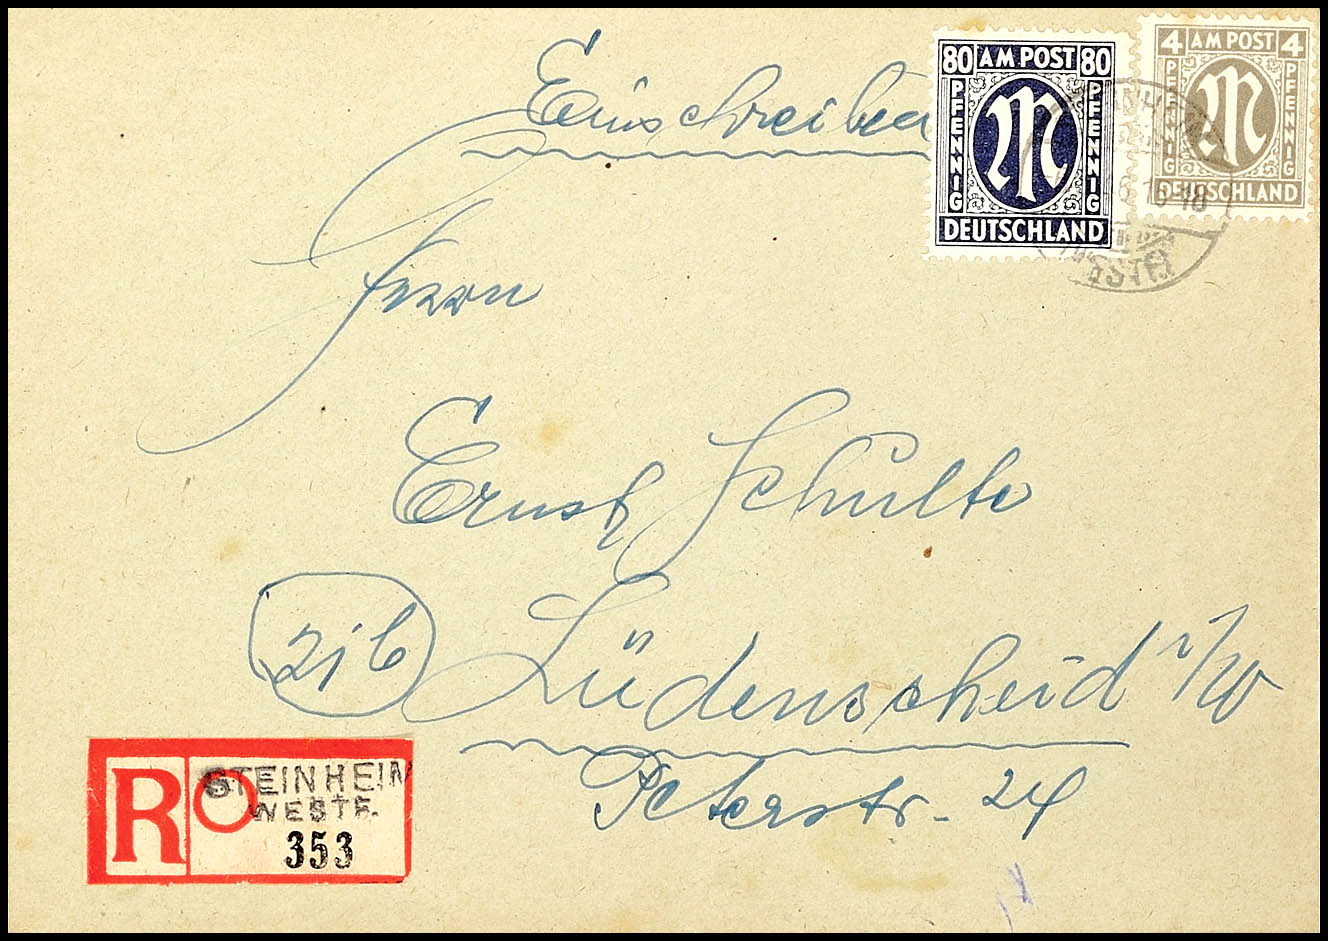 Einschreiben
80 AM POST 80
PFENNIG PFENNIG
DEUTSCHLAND
4 AM POST 4
PFENNIG PFENNIG
DEUTSCHLAND
Herrn
Ernst Schulte
21b Lüdenscheid i/W
Peterstr. 24
R STEINHEIM
WESTF.
353